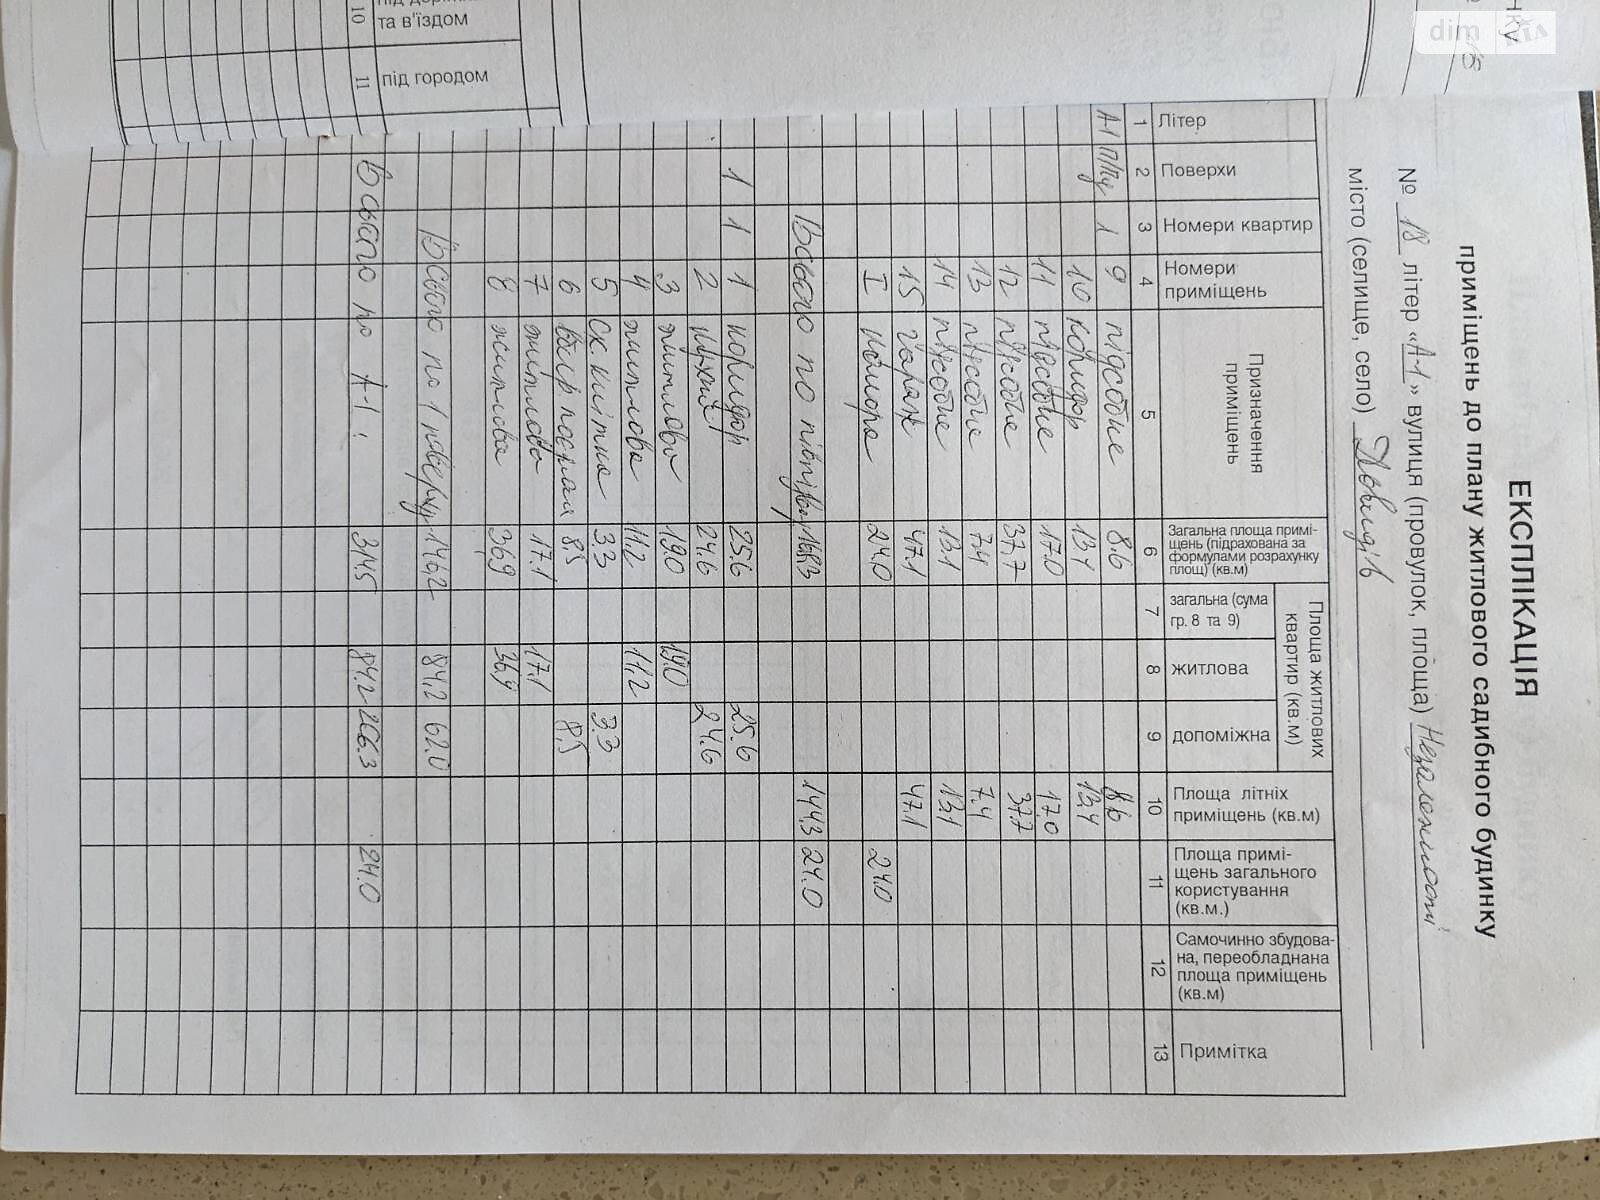 ЕКСПЛІКАЦІЯ
приміщень до плану житлового садибного будинку
№ 18 літер «А-1» вулиця (провулок, площа) Незалежності
місто (селище, село) Довжидів
Літер Поверхи Номери квартир Номери приміщень Призначення приміщень Загальна площа примі-щень (підрахована за формулами розрахунку площ) (кв.м) Площа житлових квартир (кв.м) загальна (сума гр. 8 та 9) житлова допоміжна Площа літніх приміщень (кв.м) Площа примі-щень загального користування (кв.м.) Самочинно збудова-на, переобладнана площа приміщень (кв.м) Примітка
1 2 3 4 5 6 7 8 9 10 11 12 13
А-1 1 9 підсобне 8.6 8.6
10 коридор 13.4 13.4
11 підсобне 17.0 17.0
12 підсобне 37.7 37.7
13 підсобне 7.4 7.4
14 підсобне 13.1 13.1
15 гараж 47.1 47.1
I комора 24.0 24.0
Всього по 144.3 24.0
1 1 1 коридор 25.6 25.6
2 кухня 24.6 24.6
3 житлова 19.0 19.0
4 житлова 11.2 11.2
5 3.3 3.3
6 8.5 8.5
7 житлова 17.1 17.1
8 житлова 36.9 36.9
Всього по 1 поверху 146.2 84.2 62.0
Всього по А-1: 314.5 84.2 206.3 24.0
10 та в'їздом
11 під городом
dim RIA